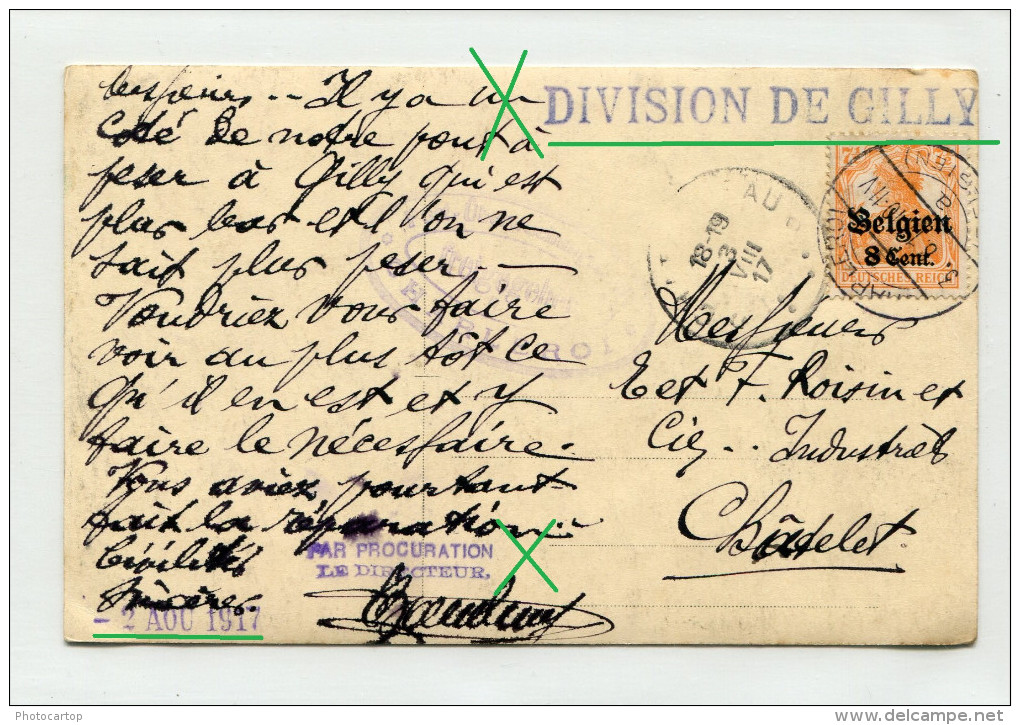 DIVISION DE GILLY
Il y a un
Côté de notre pont à
peser à Gilly qui est
plus bas et l'on ne
sait plus peser. —
Voudriez vous faire
voir au plus tôt ce
qu'il en est et y
faire le nécessaire.
Vous aviez pourtant
fait la réparation
Civilités
sincères.
- 2 AOU 1917
PAR PROCURATION
LE DIRECTEUR,
18-19
3
VIII
17
Belgien
8 Cent.
DEUTSCHES REICH
Messieurs
E et F. Roisin et
Cie, . . Industriels
Châtelet.
Photocartop
delcampe.net